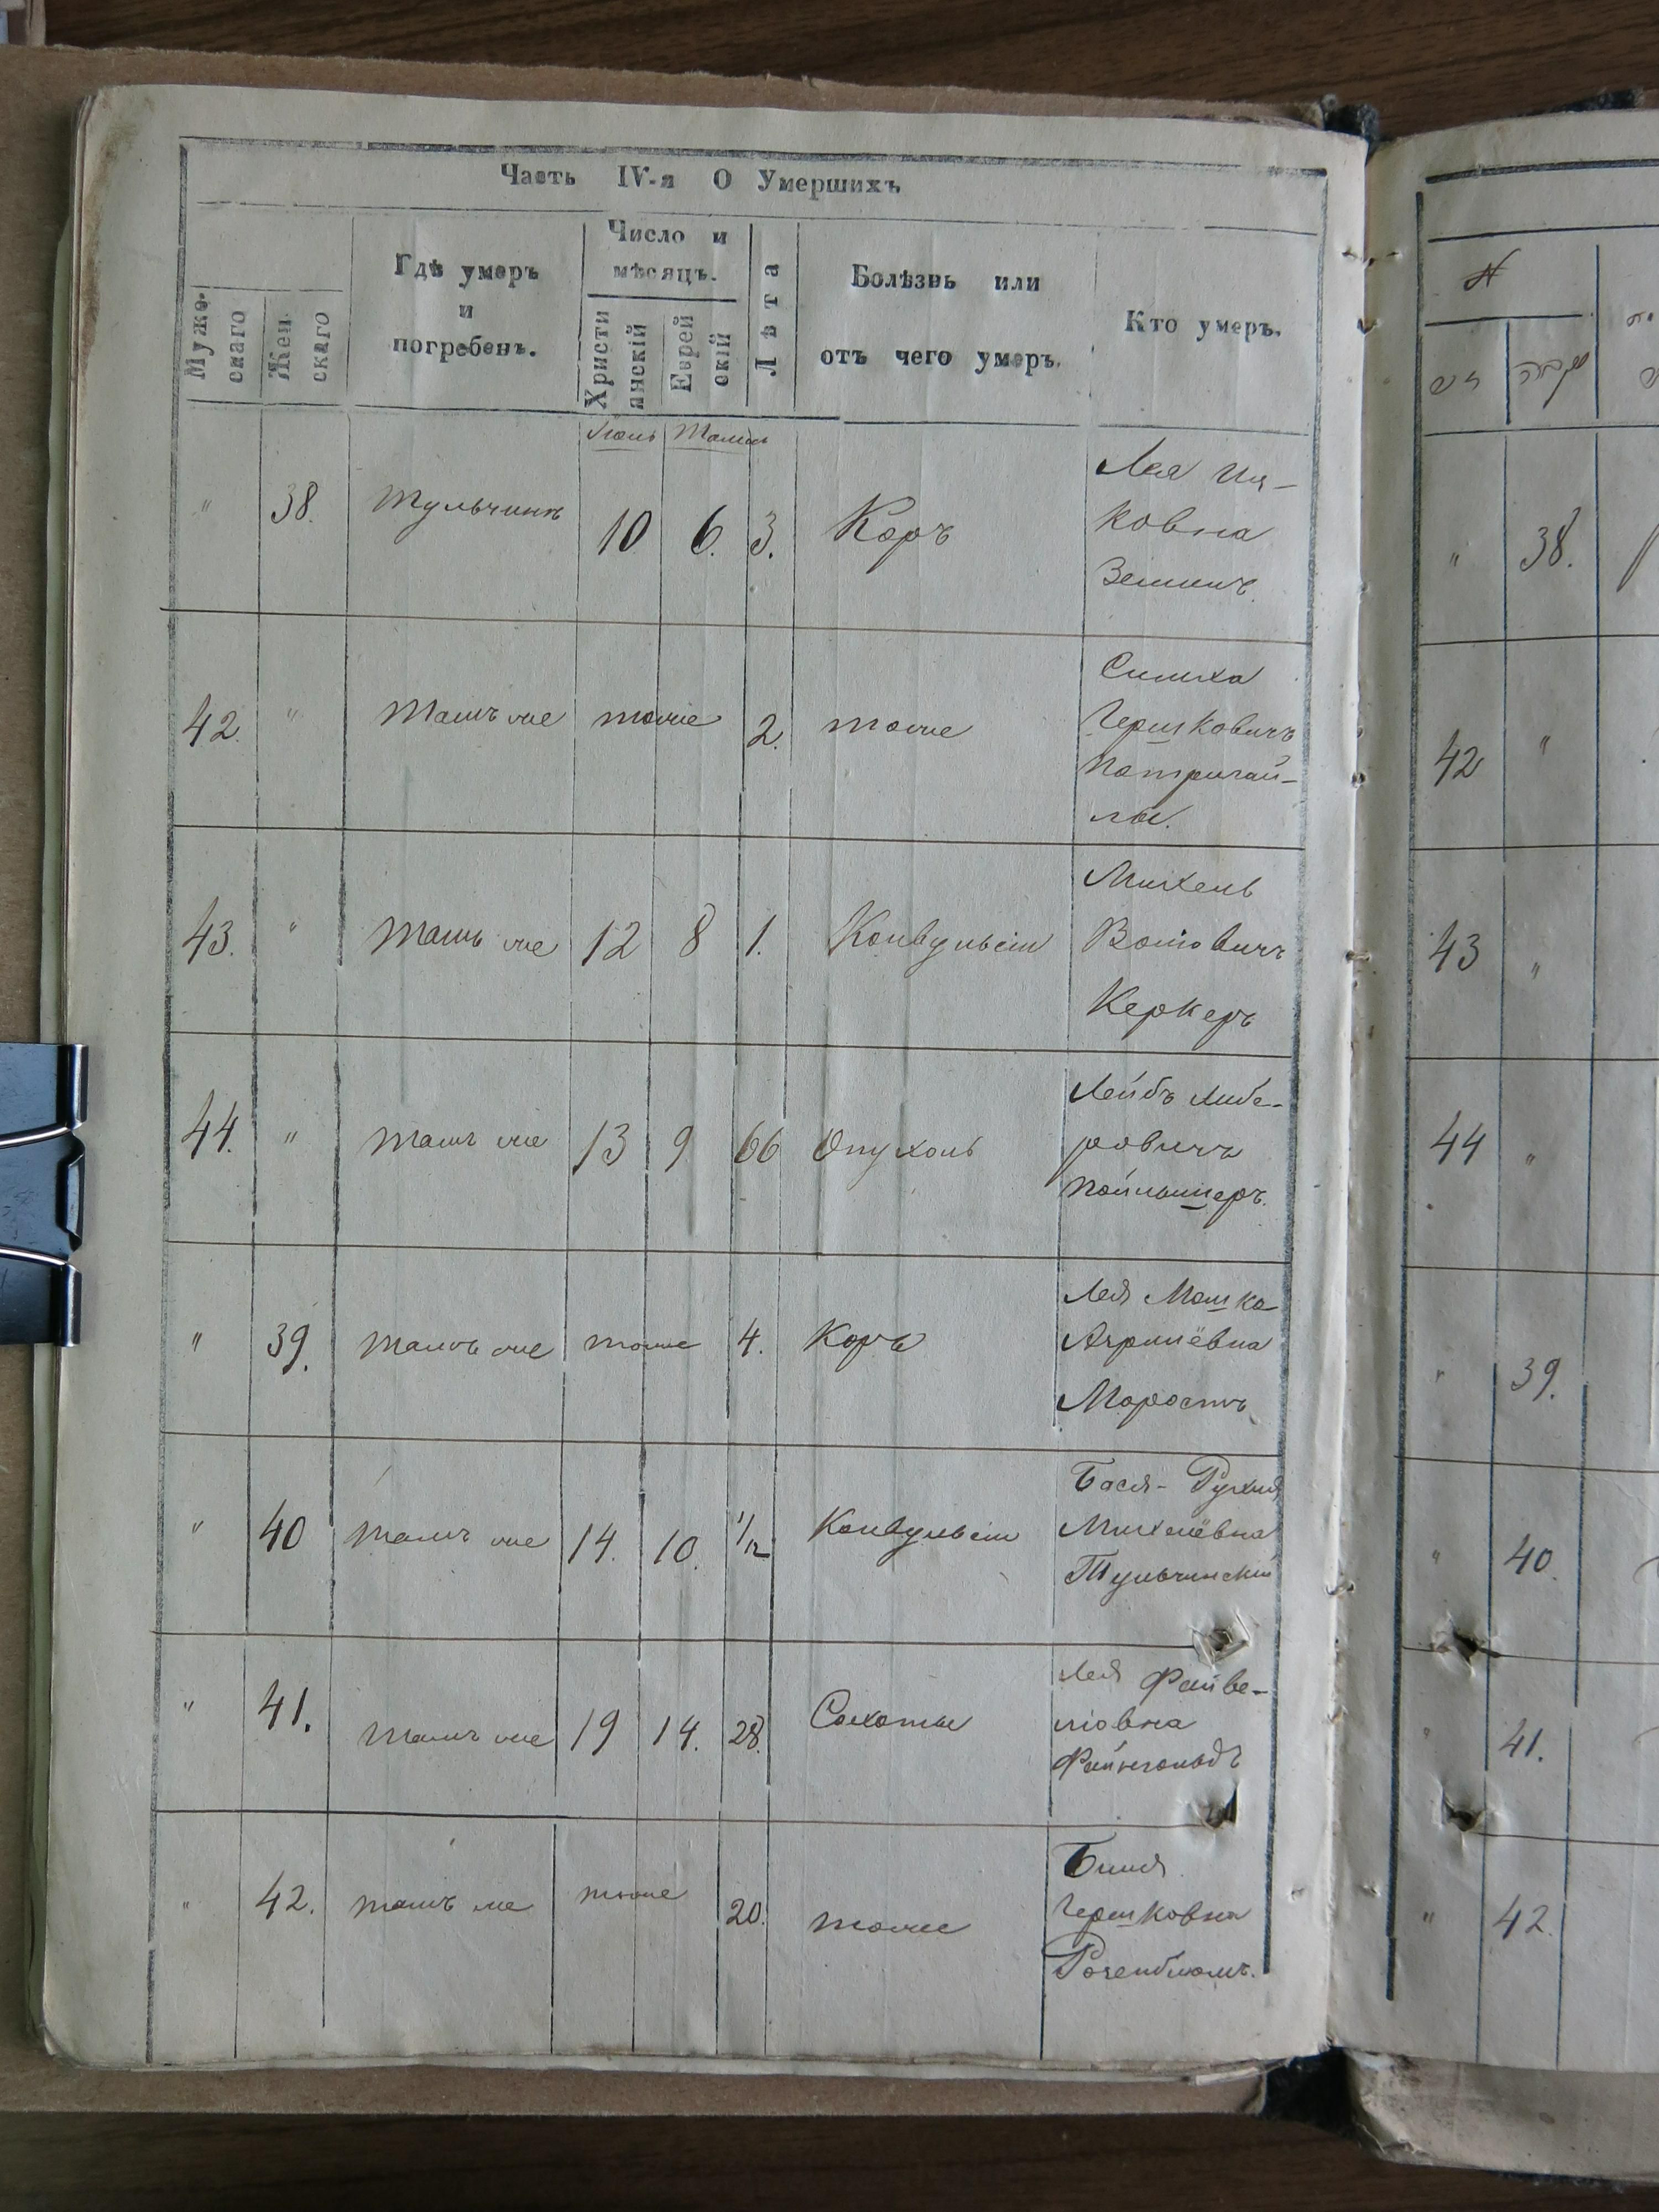 Часть IV-я О Умершихъ
Мужескаго
Женскаго
Гдѣ умеръ и погребенъ.
Число и мѣсяцъ.
Христианскій
Еврейскій
Лѣта
Болѣзнь или отъ чего умеръ.
Кто умеръ.
" 38. Тульчинъ 10 6. 3. Корь
Лея
ковна
42. " Тамъ же тоже 2. тоже
Симха
Гершковичъ
43. " Тамъ же 12 8 1. Конвульсіи
Михель
Керкеръ
44. " Тамъ же 13 9 66 Опухоль
Лейбъ Либе-
ровичъ
" 39. Тамъ же тоже 4. Корь
Лея Мошка
" 40 Тамъ же 14. 10. 1/12 Конвульсіи
Бася-Рухля
Михелёвна
Тульчинскій
" 41. Тамъ же 19 14. 28. Сухоты
Лея Файве-
лiовна
Файнгольдъ
" 42. тамъ же тоже 20. тоже
Гершковна
Розенблюмъ.
№
" 38.
42 "
43 "
44 "
" 39.
" 40.
" 41.
" 42.